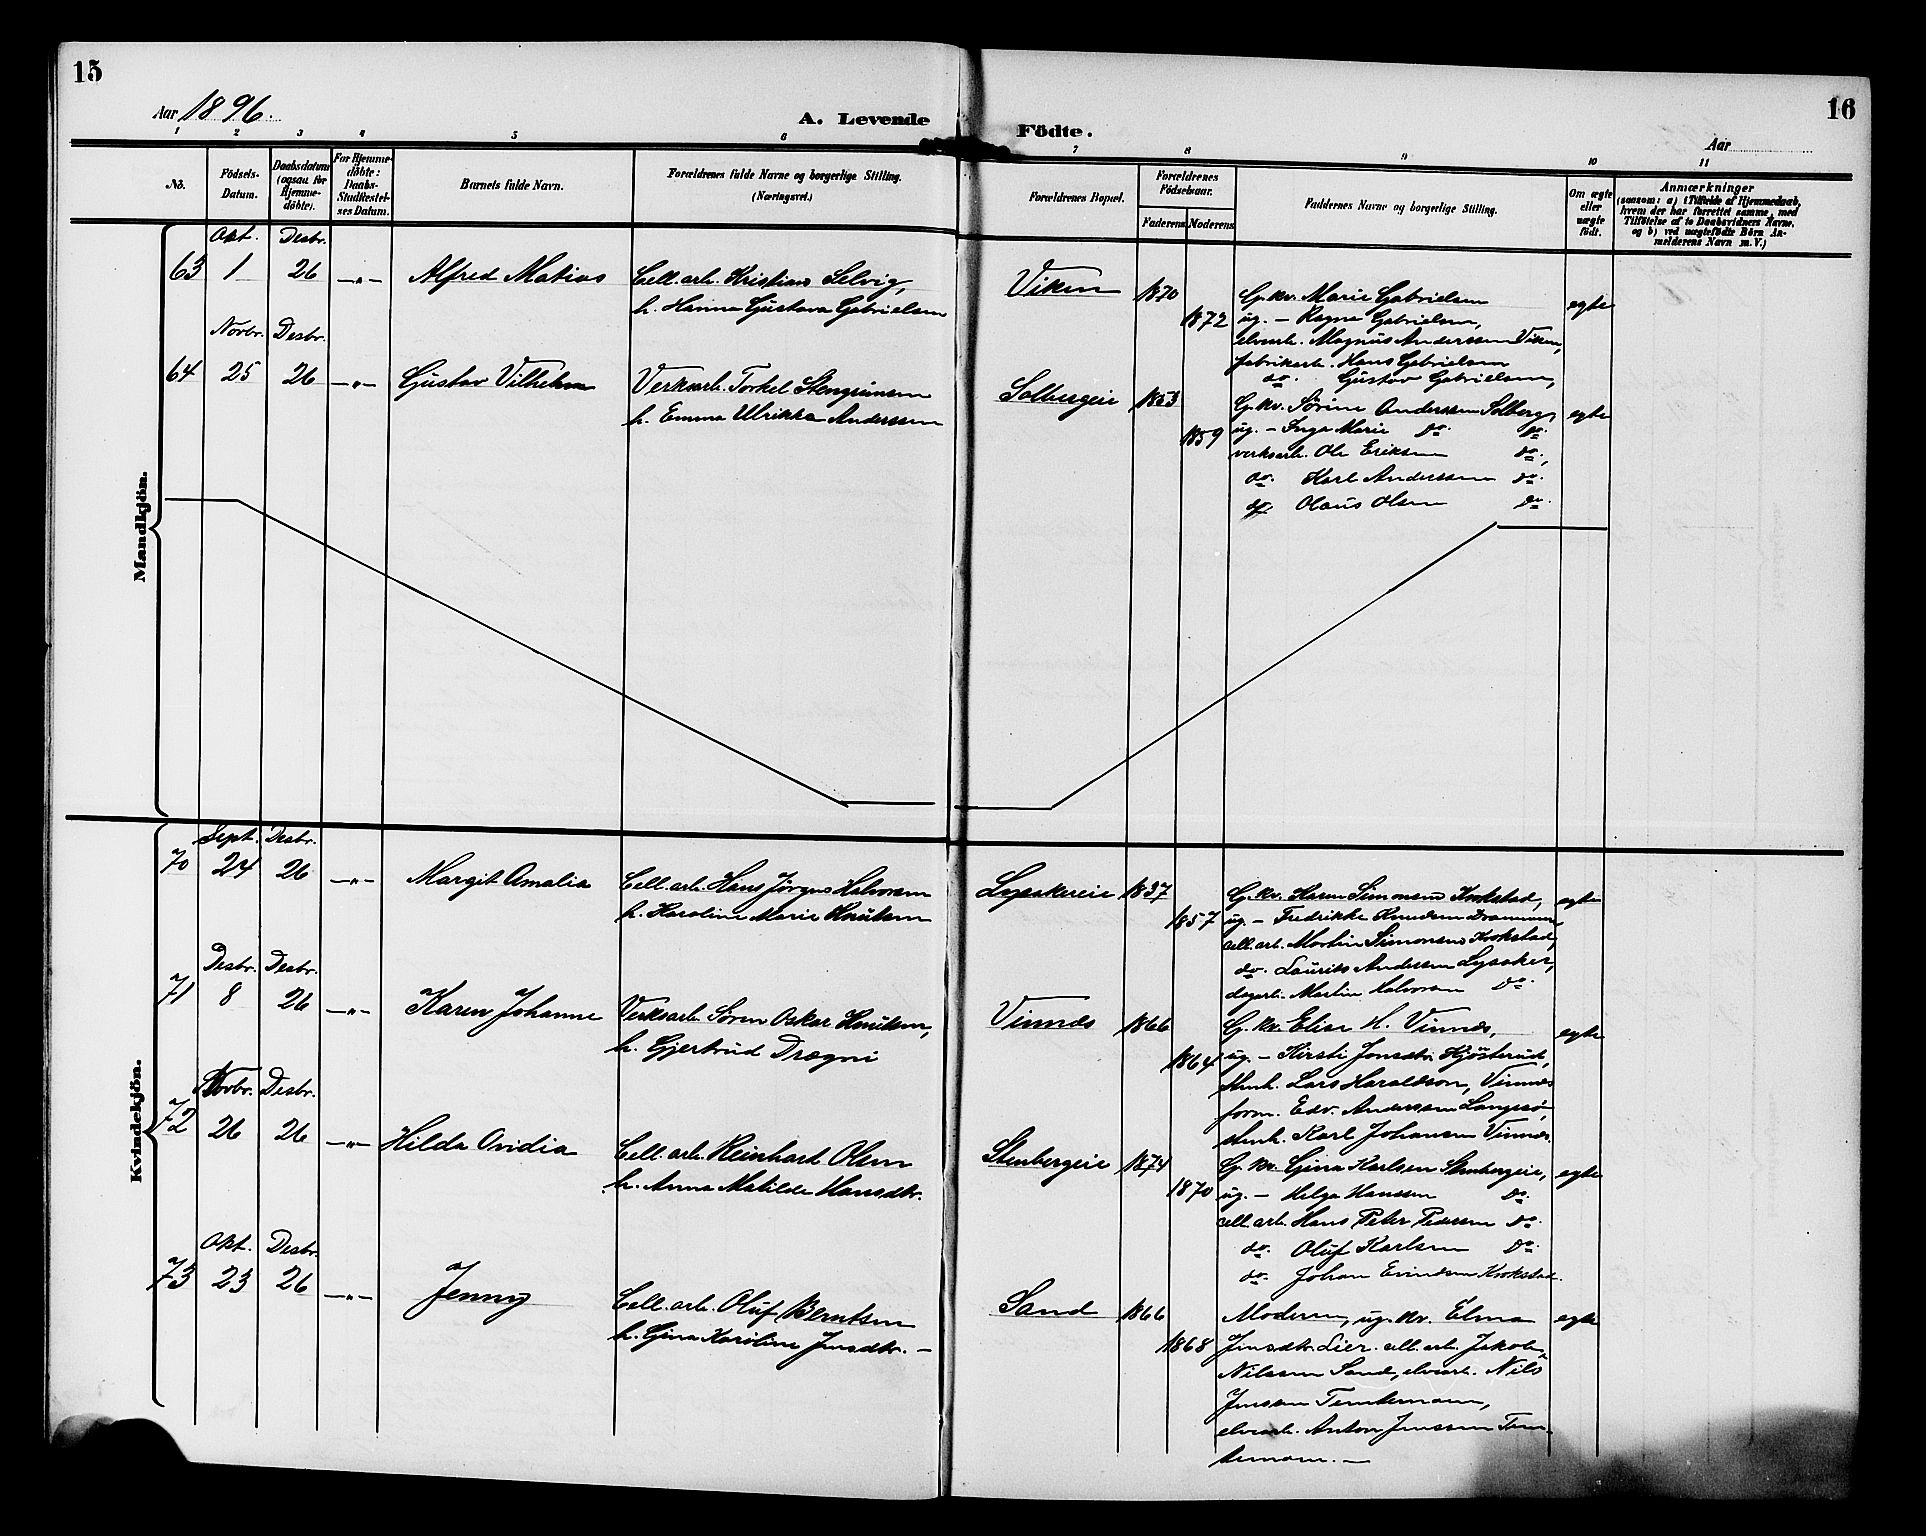 15
16
Aar 1896.
A. Levende
Födte.
Aar
1 2 3 4 5 6 7 8 9 10 11
No.
Födsels-
Datum.
Daabsdatum
(ogsaa for
Hjemme-
döbte).
For Hjemme-
döbte:
Daabs-
Stadfestel-
ses Datum.
Barnets fulde Navn.
Forældrenes fulde Navne og borgerlige Stilling.
(Næringsvei.)
Forældrenes Bopæl.
Forældrenes
Födselsaar.
Faderens Moderens
Faddernes Navne og borgerlige Stilling.
Om ægte
eller
uægte
födt.
Anmærkninger
(saasom: a) i Tilfælde af Hjemmedaab,
hvem der har forrettet samme, med
Tilföielse af to Daabsvidners Navne,
og b) ved uægtefödte Börn An-
melderens Navn m. V.)
Mandkjön.
Okt. Desbr.
63 1 26 —„— Alfred Matias Cell. arb. Kristian Selvig,
h. Hanna Gustava Gabrielsen
Viken 1870
1872
G. kv. Marie Gabrielsen
ug. – Ragna Gabrielsen,
elvearb. Magnus Anderssen Viken,
fabrikarb. Hans Gabrielsen
do. Gustav Gabrielsen,
egte
Novbr. Desbr.
64 25 26 —„— Gustav Vilhelm Verksarb. Torkel Stengrimsen
h. Emma Ulrikka Anderssen
Solbergeie 1853
1859
G. kv. Sørine Anderssen Solberg,
ug. – Inga Marie do. do.
verksarb. Ole Eriksen do.,
do. Karl Anderssen do.
do. Olaus Olsen do.
egte
Kvindekjön.
Sept. Desbr.
70 24 26 —„— Margit Amalia Cell. arb. Hans Jørgen Halvorsen
h. Karoline Marie Knutsen
Lysakereie 1837
1857
G. kv. Karen Simonsen Krokstad,
ug. – Fredrikke Knudsen Drammen,
cell. arb. Martin Simonsen Krokstad,
do. Laurits Andersen Lysaker,
dagarb. Martin Halvorsen do.
egte
Desbr. Desbr.
71 8 26 —„— Karen Johanne Verksarb. Søren Oskar Knutsen,
h. Gjertrud Drægni
Vinnes 1866
1864
G. kv. Elise H. Vinnes,
ug. – Kirsti Jonsdtr. Kjøsterud,
stenh. Lars Haraldson, Vinnes
form. Edv. Anderssen Langesø,
stenh. Karl Johansen Vinnes.
egte
Novbr. Desbr.
72 26 26 —„— Hilda Ovidia Cell. arb. Reinhart Olsen
h. Anna Matilde Hansdtr.
Stenbergeie 1874
1870
G. kv. Gina Karlsen Stenbergeie,
ug. – Helga Hanssen do.
cell. arb. Hans Peter Pedersen do.
do. Oluf Karlsen do.
do. Johan Evindsen Krokstad.
egte
Okt. Desbr.
73 23 26 —„— Jenny Cell. arb. Oluf Berntsen
h. Gina Karoline Jensdtr. –
Sand 1866
1868
Moderen, ug. kv. Elma
Jensdtr. Lier. cell. arb. Jakob
Nilssen Sand, elvearb. Nils
Jenssen Timmermann,
elvearb. Anton Jenssen Tim-
mermann. —
egte